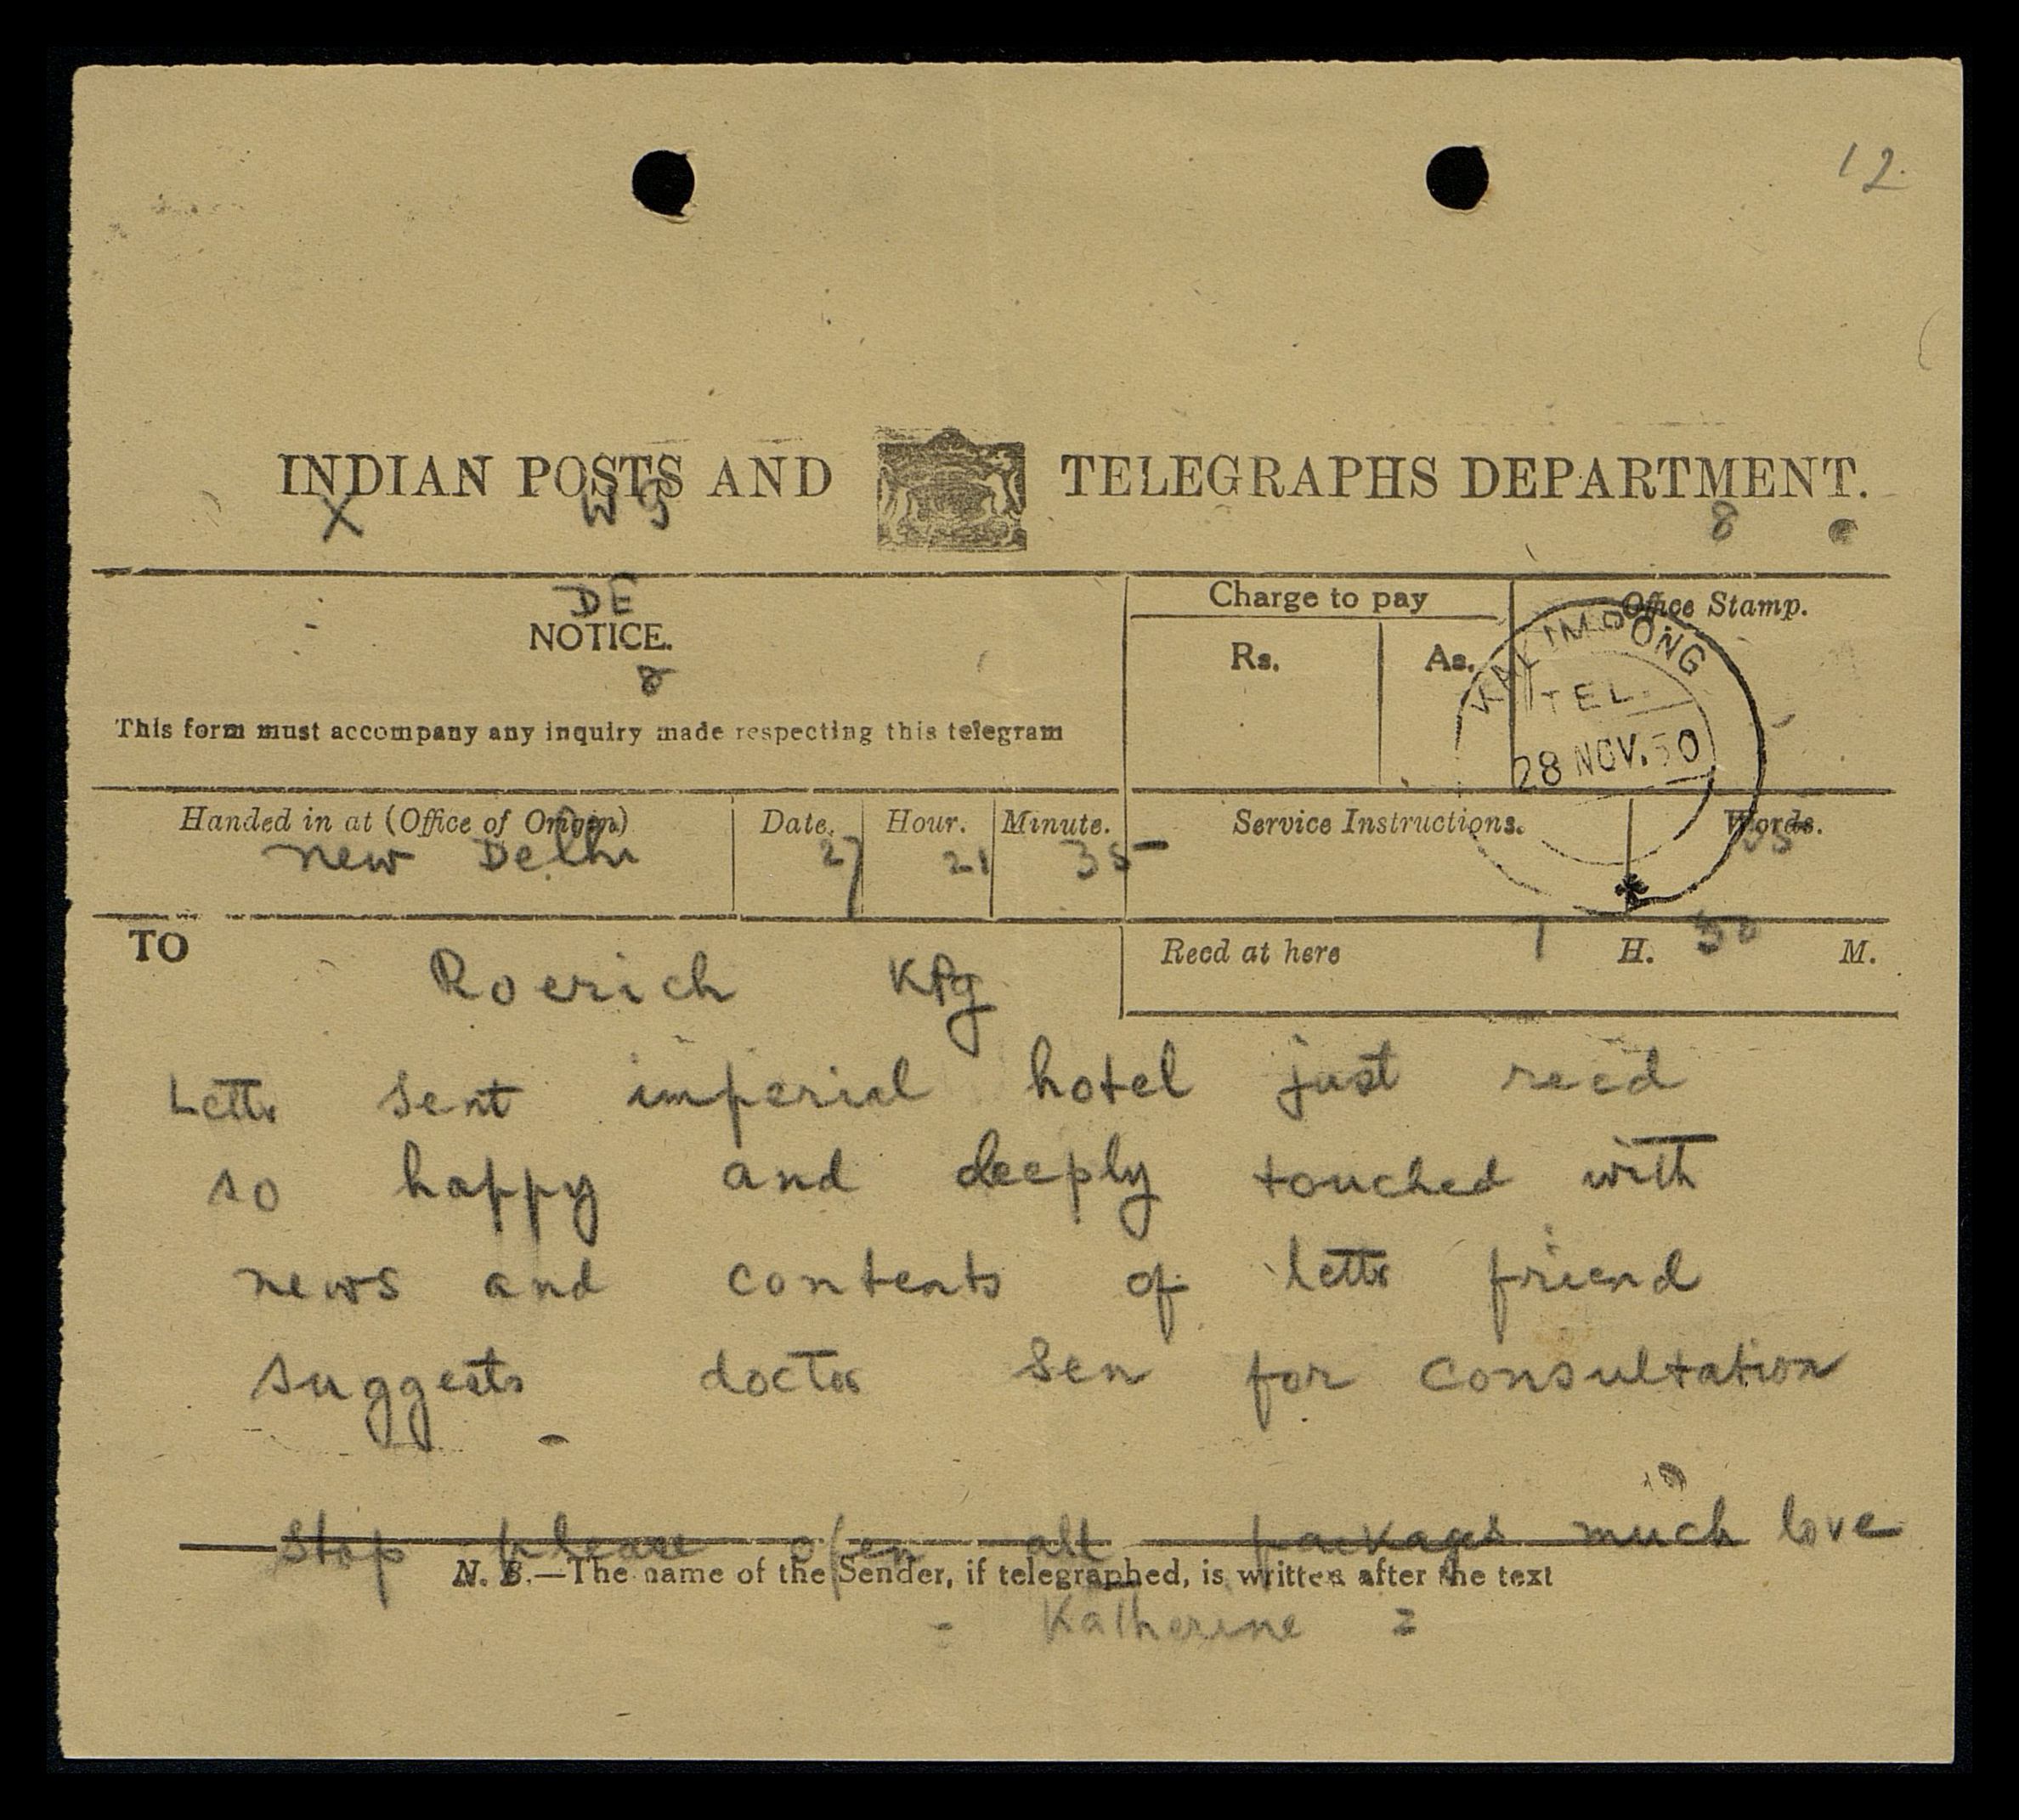 12.
INDIAN POSTS AND TELEGRAPHS DEPARTMENT.
X WG 8
DE
NOTICE.
8
This form must accompany any inquiry made respecting this telegram
Charge to pay
Rs. As.
Office Stamp.
KALIMPONG
TEL.
28 NOV. 50
Handed in at (Office of Origin) Date. Hour. Minute. Service Instructions. Words.
New Delhi 27 21 35
TO
Roerich KPg
Recd at here H. 30 M.
Lettr sent imperial hotel just recd
so happy and deeply touched with
news and contents of lettr friend
suggests doctor Sen for consultation
Stop please open all packages much love
N. B.—The name of the Sender, if telegraphed, is written after the text
- Katherine =